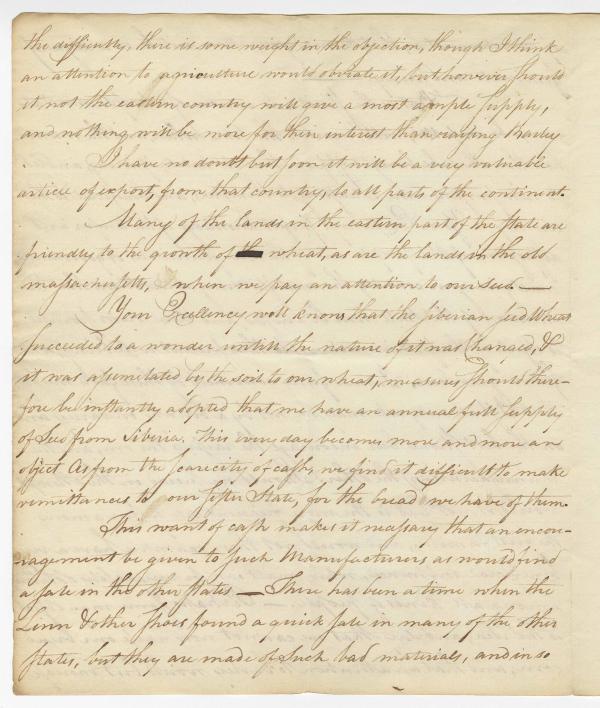 the difficulty, there is some weight in the objection, though I think
an attention to agriculture would obviate it, but however should
it not the eastern country will give a most ample supply,
and nothing will be more for their interest than raising Barley
I have no doubt but soon it will be a very valuable
article of export, from that country, to all parts of the continent.
Many of the lands in the eastern part of the State are
friendly to the growth of wheat, as are the lands in the old
massachusetts, when we pay an attention to our seed. —
Your Excellency well knows that the siberian seed Wheat
succeeded to a wonder untill the nature of it was changed, &
it was assumelated by the soil to our wheat, measures should there-
fore be instantly adopted that we have an annual full supply
of seed from Siberia. This every day becomes more and more an
object As from the scarcity of cash, we find it difficult to make
remittances to our sister State, for the bread we have of them.
This want of cash makes it necessary that an encou-
ragement be given to such Manufacturers as would find
a sale in the other states — There has been a time when the
Linn & other Shoes found a quick sale in many of the other
States, but they are made of such bad materials, and in so